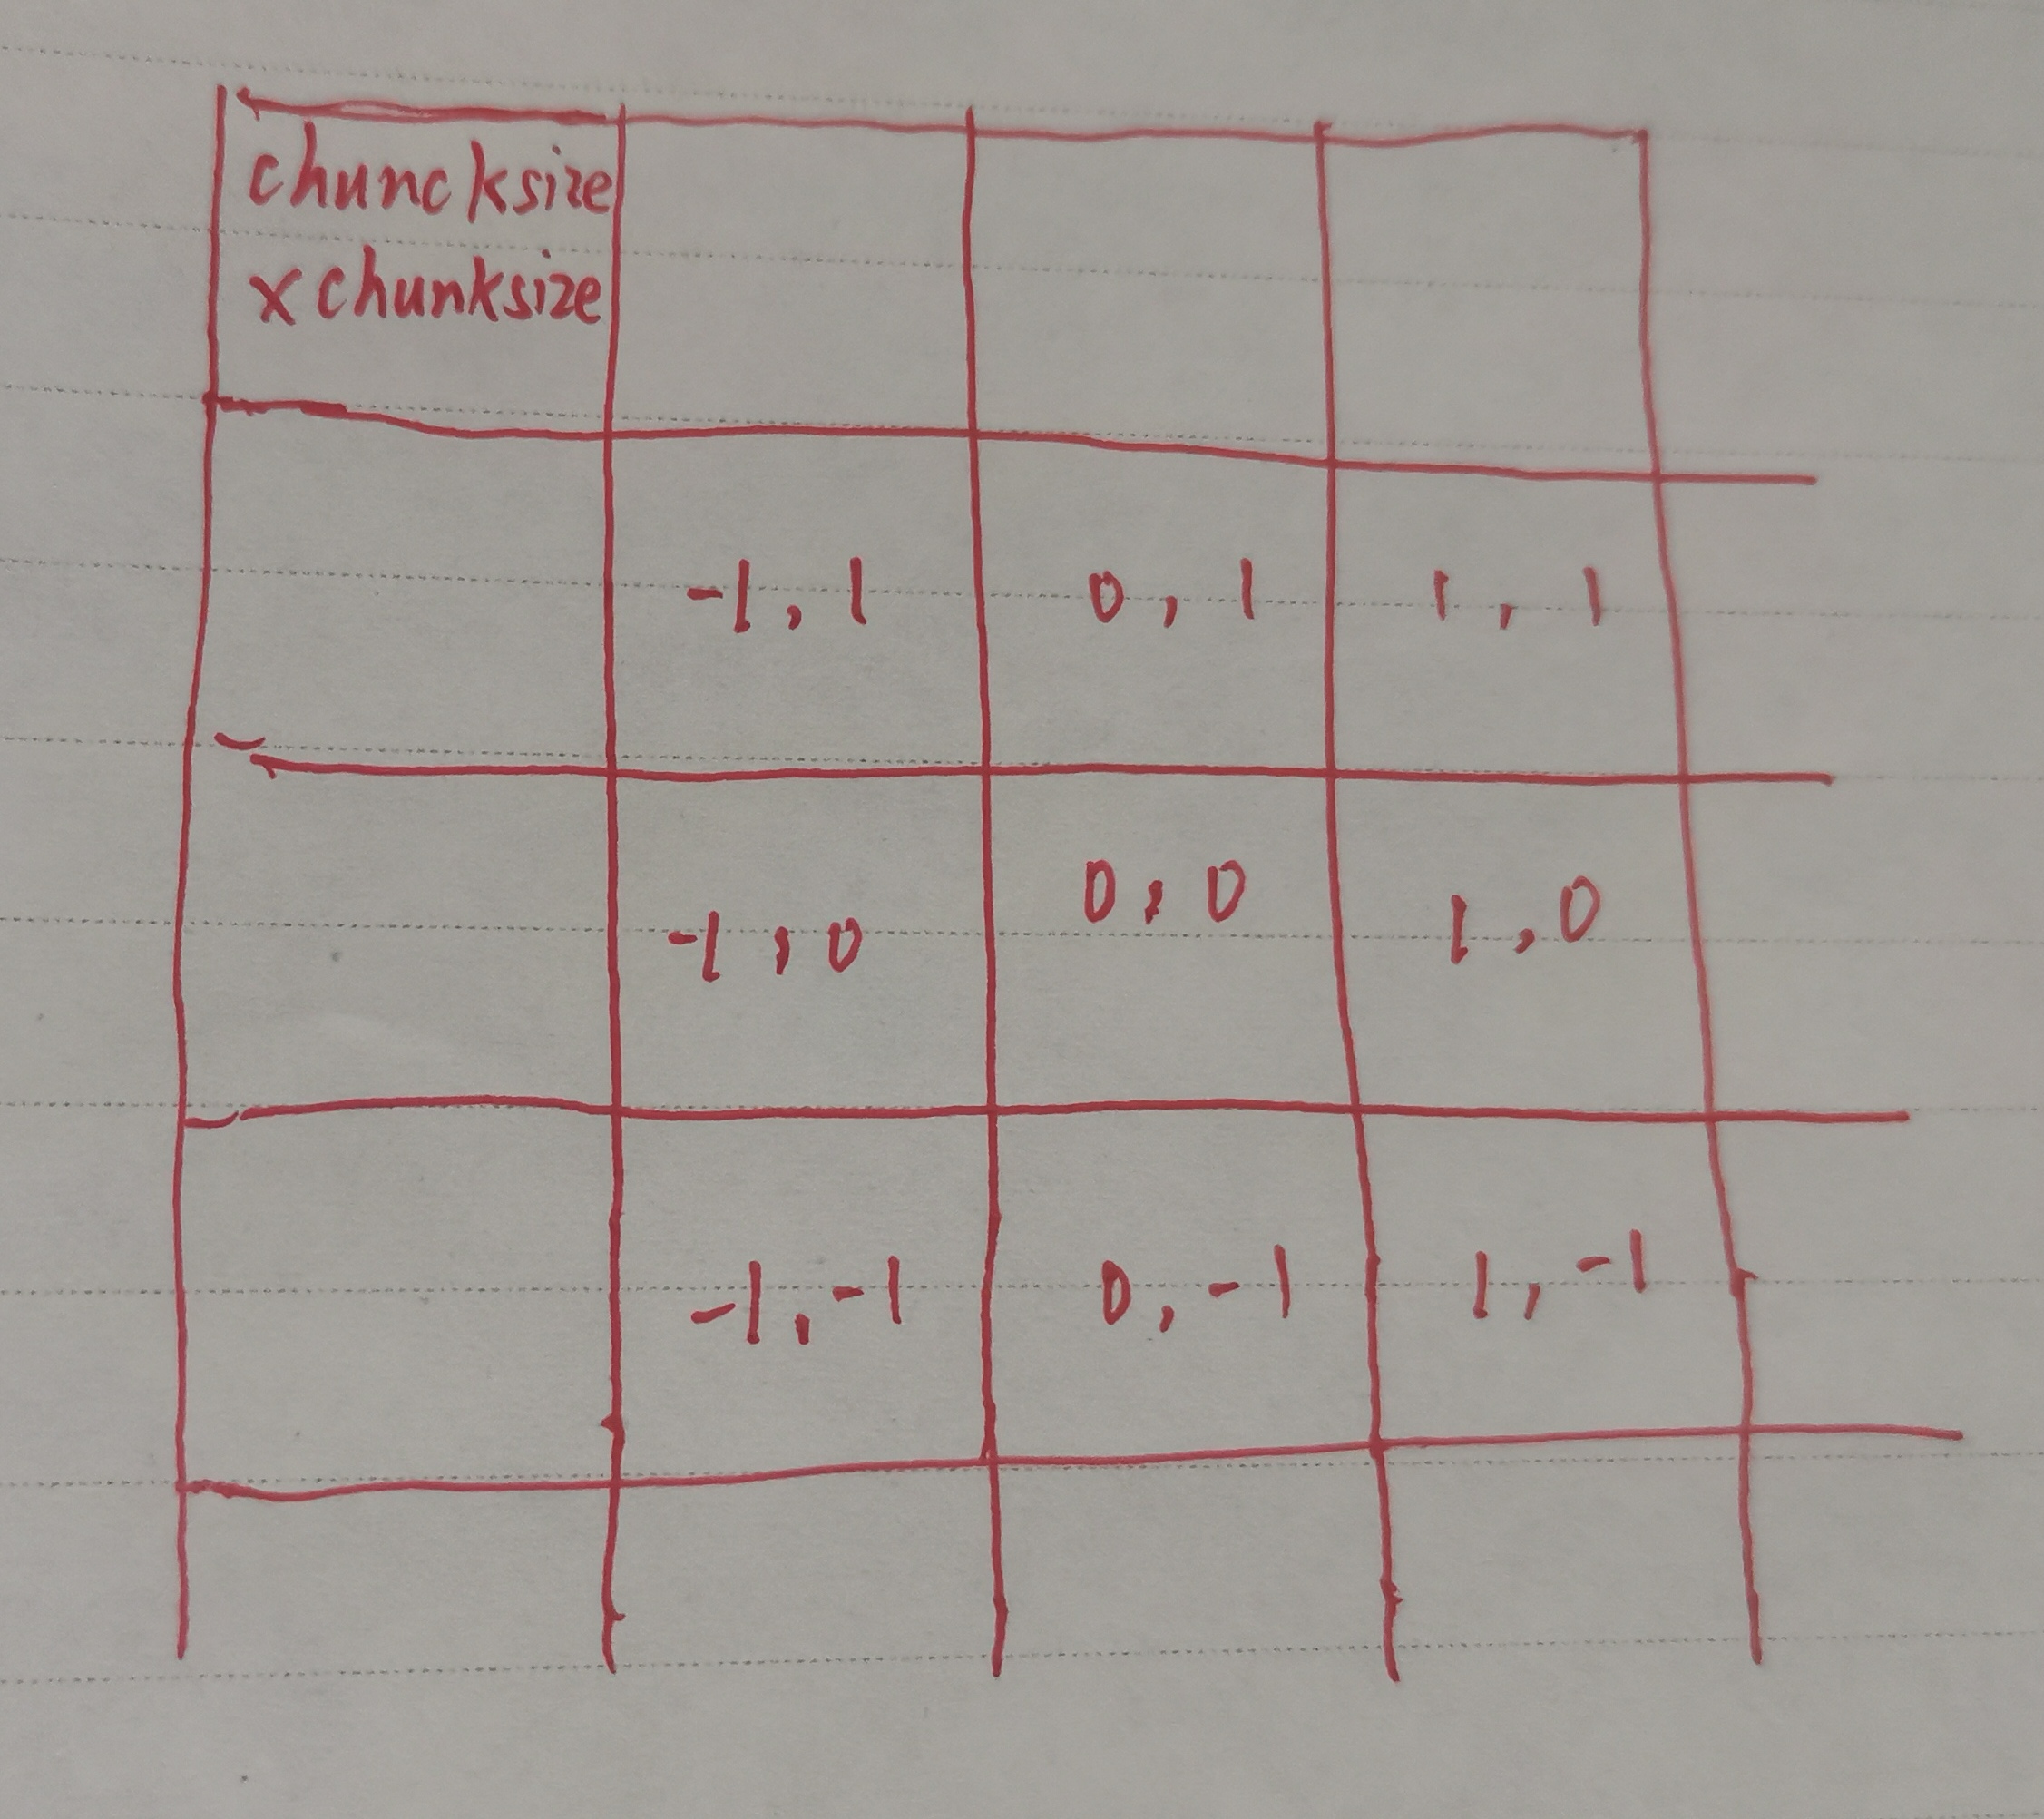 chuncksize
x chunksize
-1, 1 0, 1 1, 1
-1, 0 0, 0 1, 0
-1, -1 0, -1 1, -1